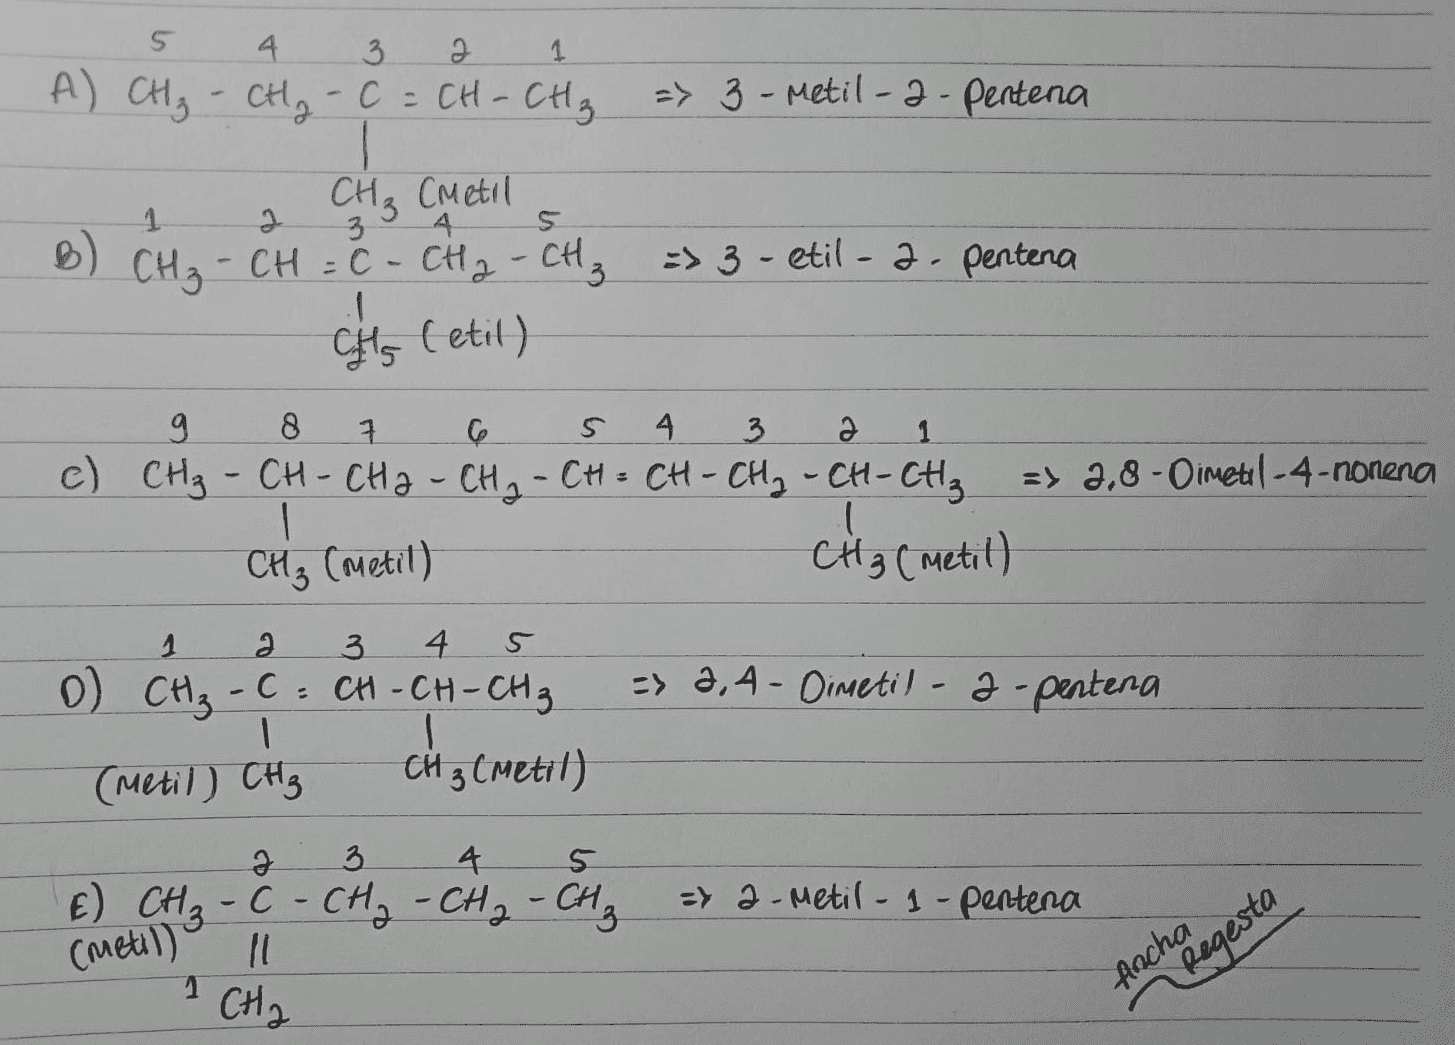 5 4 3 2 1
A) CH3 - CH2 - C = CH - CH3 => 3 - Metil - 2 - Pentena
|
CH3 (Metil
1 2 3 4 5
B) CH3 - CH = C - CH2 - CH3 => 3 - etil - 2 - pentena
|
C2H5 (etil)
9 8 7 6 5 4 3 2 1
C) CH3 - CH - CH2 - CH2 - CH = CH - CH2 - CH - CH3 => 2,8 - Dimetil - 4 - nonena
| |
CH3 (Metil) CH3 (Metil)
1 2 3 4 5
D) CH3 - C = CH - CH - CH3 => 2,4 - Dimetil - 2 - pentena
| |
(Metil) CH3 CH3 (Metil)
2 3 4 5
E) CH3 - C - CH2 - CH2 - CH3 => 2 - Metil - 1 - Pentena
(Metil) ||
1 CH2
Ancha
Regesta